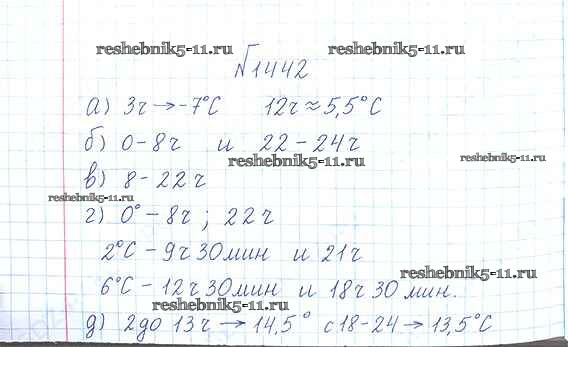 reshebnik5-11.ru reshebnik5-11.ru
№1442
а) 3ч → -7°С 12ч ≈ 5,5°С
б) 0-8ч и 22-24ч
reshebnik5-11.ru reshebnik5-11.ru
в) 8-22ч
reshebnik5-11.ru
г) 0° - 8ч ; 22ч
2°С - 9ч 30мин и 21ч
reshebnik5-11.ru
6°С - 12ч 30мин и 18ч 30 мин.
reshebnik5-11.ru
д) 2до 13ч → 14,5° с18-24 → 13,5°С